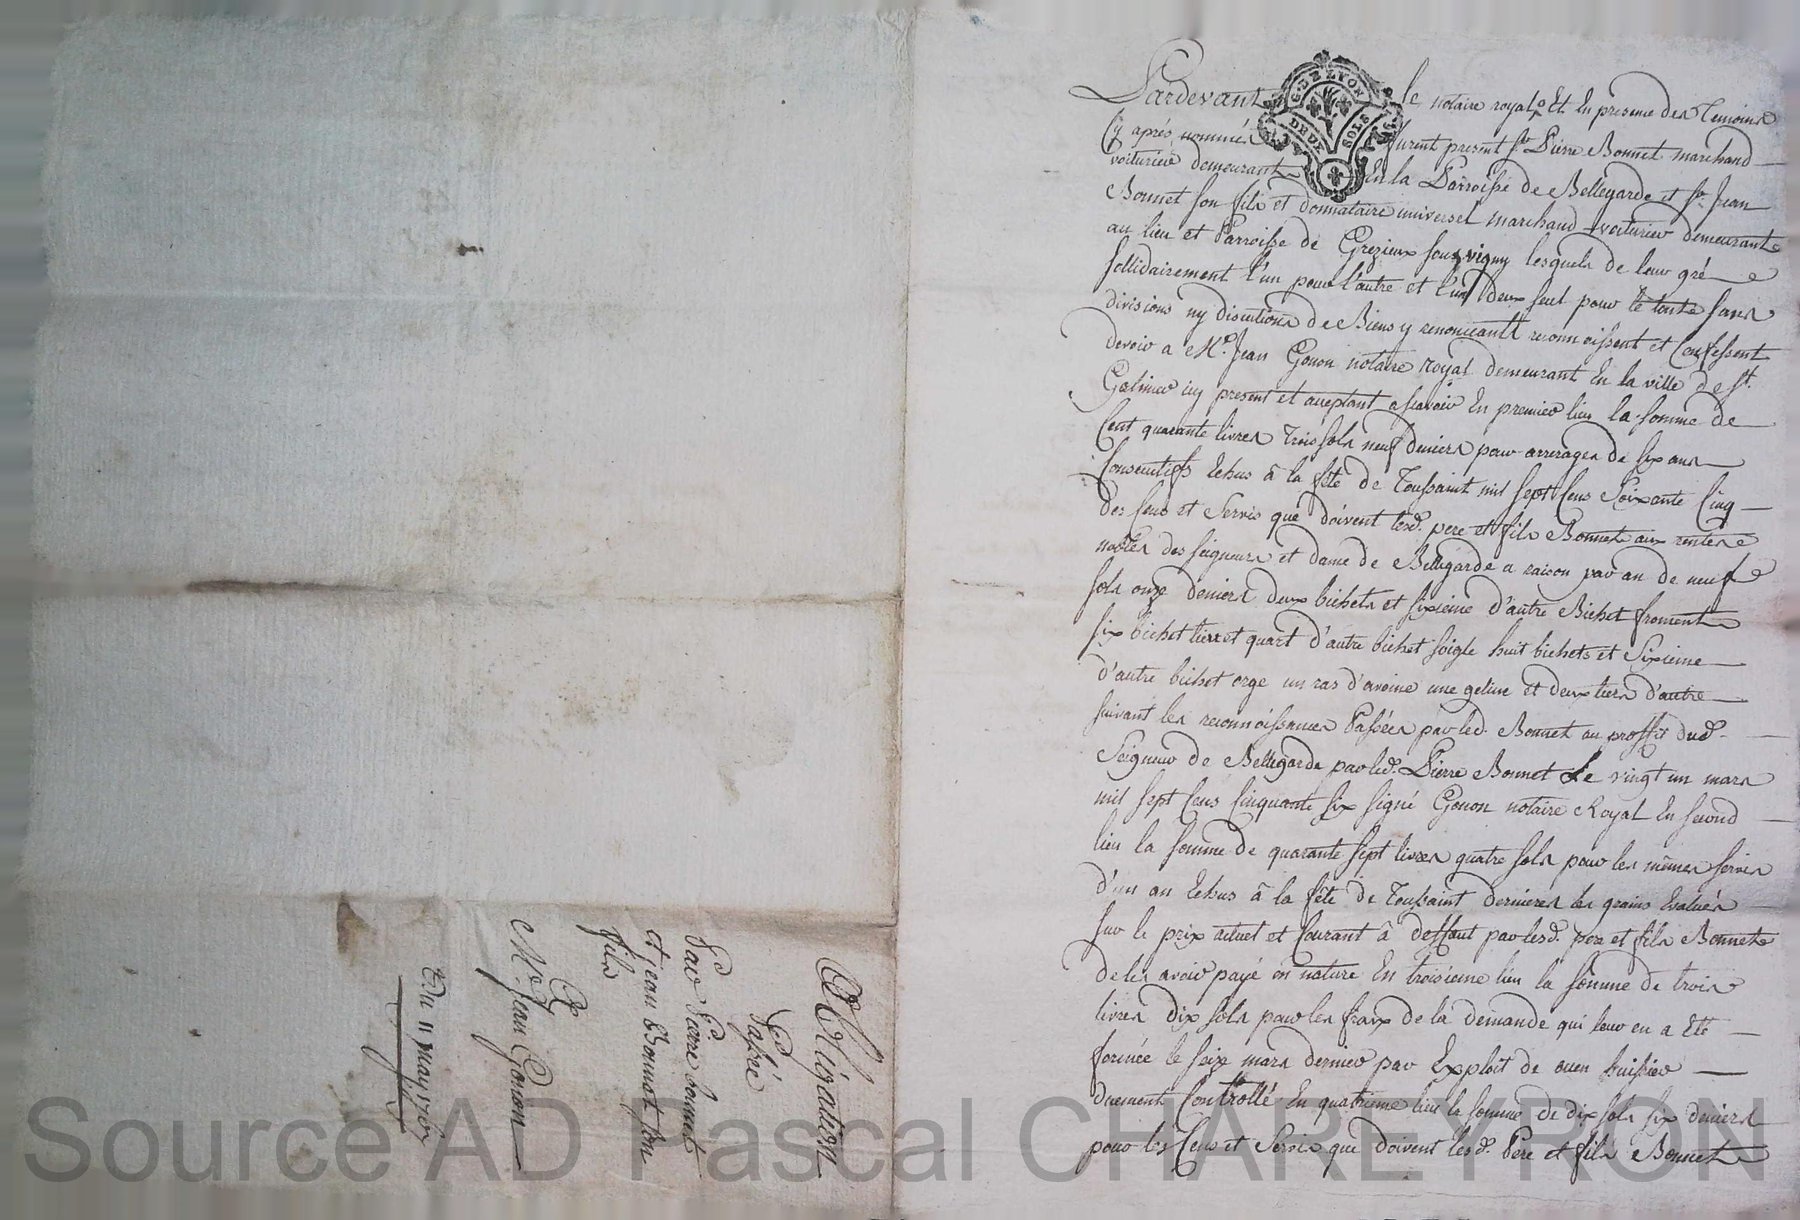 Obligation
Passée
Par Pierre bonnet
et jean Bonnet son
fils
A
Me. Jean Gonon
Du 11 may 1767
G. DE LYON
DEUX SOLS
Pardevant le notaire royal et En presence des Temoins
Cy aprés nommés furent present sr. Pierre Bonnet marchand
voiturier demeurant En la Parroisse de Bellegarde et sr. Jean
Bonnet son fils et donnataire universel marchand voiturier demeurant
au lieu et Parroisse de Grezieux souzvigny lesquels de leur gré
sollidairement l'un pour l'autre et l'un deux seul pour le tout sans
divisions ny discutions de Biens y renonceants reconnoissent et Confessent
devoir a Me. Jean Gonon notaire royal demeurant En la ville de st.
Galmier icy present et acceptant ascavoir En premier lieu la somme de
Cent quarante livres trois sols neuf deniers pour arrerages de six ans
Consecutifs Echus â la fête de Toussaint mil sept Cens Soixante Cinq
des Cens et Servis que doivent lesd. pere et fils Bonnet aux rentes
nobles des seigneurs et dame de Bellegarde a raison par an de neuf
sols onze deniers deux bichets et sixieme d'autre Bichet froment
six bichet tiers et quart d'autre bichet soigle huit bichets et Sixieme
d'autre bichet orge un ras d'avoine une geline et deux tiers d'autre
suivant les reconnoissances Passées par led. Bonnet au proffit dud.
Seigneur de Bellegarde par led. Pierre Bonnet Le vingt un mars
mil sept Cens Cinquante six signé Gonon notaire Royal En second
lieu la somme de quarante sept livres quatre sols pour les mêmes servis
d'un an Echus â la fête de Toussaint derniere les grains Evalués
sur le prix actuel et Courant â deffaut par lesd. pere et fils Bonnet
de les avoir payé en nature En troisieme lieu la somme de trois
livres dix sols pour les fraix de la demande qui leur en a Eté
formée le seize mars dernier par Exploit de ouen huissier
duement Controllé En quatrieme lieu la somme de dix sols six deniers
pour les Cens et Servis que doivent lesd. Pere et fils Bonnet
Source AD Pascal CHAREYRON